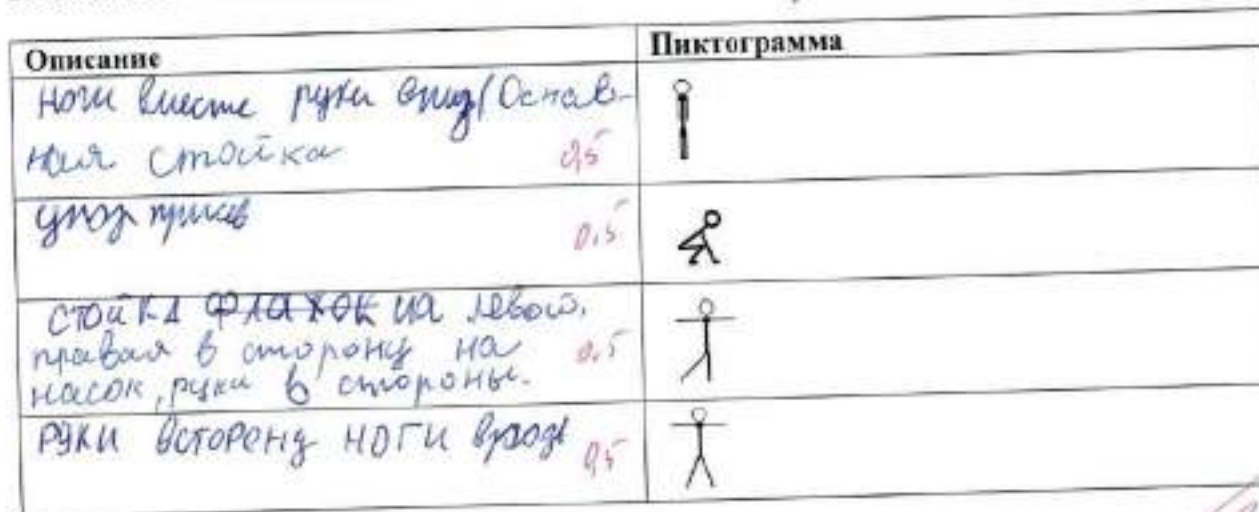 Описание
Пиктограмма
ноги вместе руки вниз (Основ-
ная стойка
0,5
упор присев
0,5
стойка флажок на левой,
правая в сторону на
носок, руки в стороны.
0,5
руки всторону ноги врозь
0,5